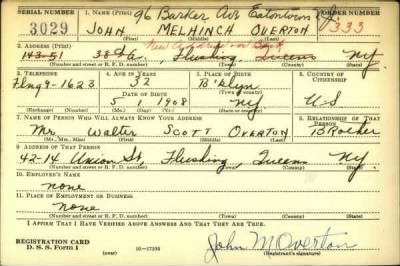 96 Barker Ave Eatontown NJ
SERIAL NUMBER 1. NAME (Print) ORDER NUMBER
3029 JOHN MELHINCH OVERTON 333
(First) (Middle) (Last)
2. ADDRESS (Print) New Address on Back
143-51 38th Av., Flushing, Queens NY.
(Number and street or R. F. D. number) (Town) (County) (State)
3. TELEPHONE 4. AGE IN YEARS 5. PLACE OF BIRTH 6. COUNTRY OF CITIZENSHIP
Flng 9-1623 32 B'klyn
DATE OF BIRTH (Town or county)
5 1 1908 NY U-S
(Exchange) (Number) (Mo.) (Day) (Yr.) (State or country)
7. NAME OF PERSON WHO WILL ALWAYS KNOW YOUR ADDRESS 8. RELATIONSHIP OF THAT PERSON
Mr. Walter Scott Overton Brother
(Mr., Mrs., Miss) (First) (Middle) (Last)
9. ADDRESS OF THAT PERSON
42-14 Union St, Flushing, Queens NY.
(Number and street or R. F. D. number) (Town) (County) (State)
10. EMPLOYER'S NAME
none
11. PLACE OF EMPLOYMENT OR BUSINESS
none
(Number and street or R. F. D. number) (Town) (County) (State)
I AFFIRM THAT I HAVE VERIFIED ABOVE ANSWERS AND THAT THEY ARE TRUE.
REGISTRATION CARD
D. S. S. Form 1 (over) John M Overton
(Registrant's signature)